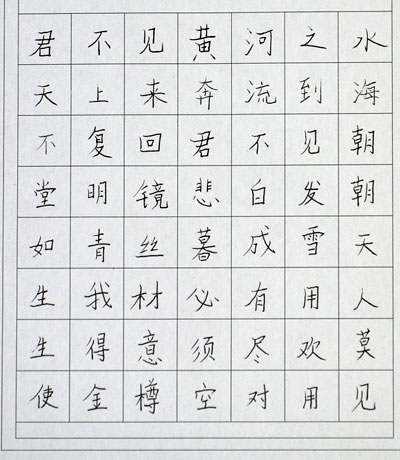 君不见黄河之水
天上来奔流到海
不复回君不见朝
堂明镜悲白发朝
如青丝暮成雪天
生我材必有用人
生得意须尽欢莫
使金樽空对用见